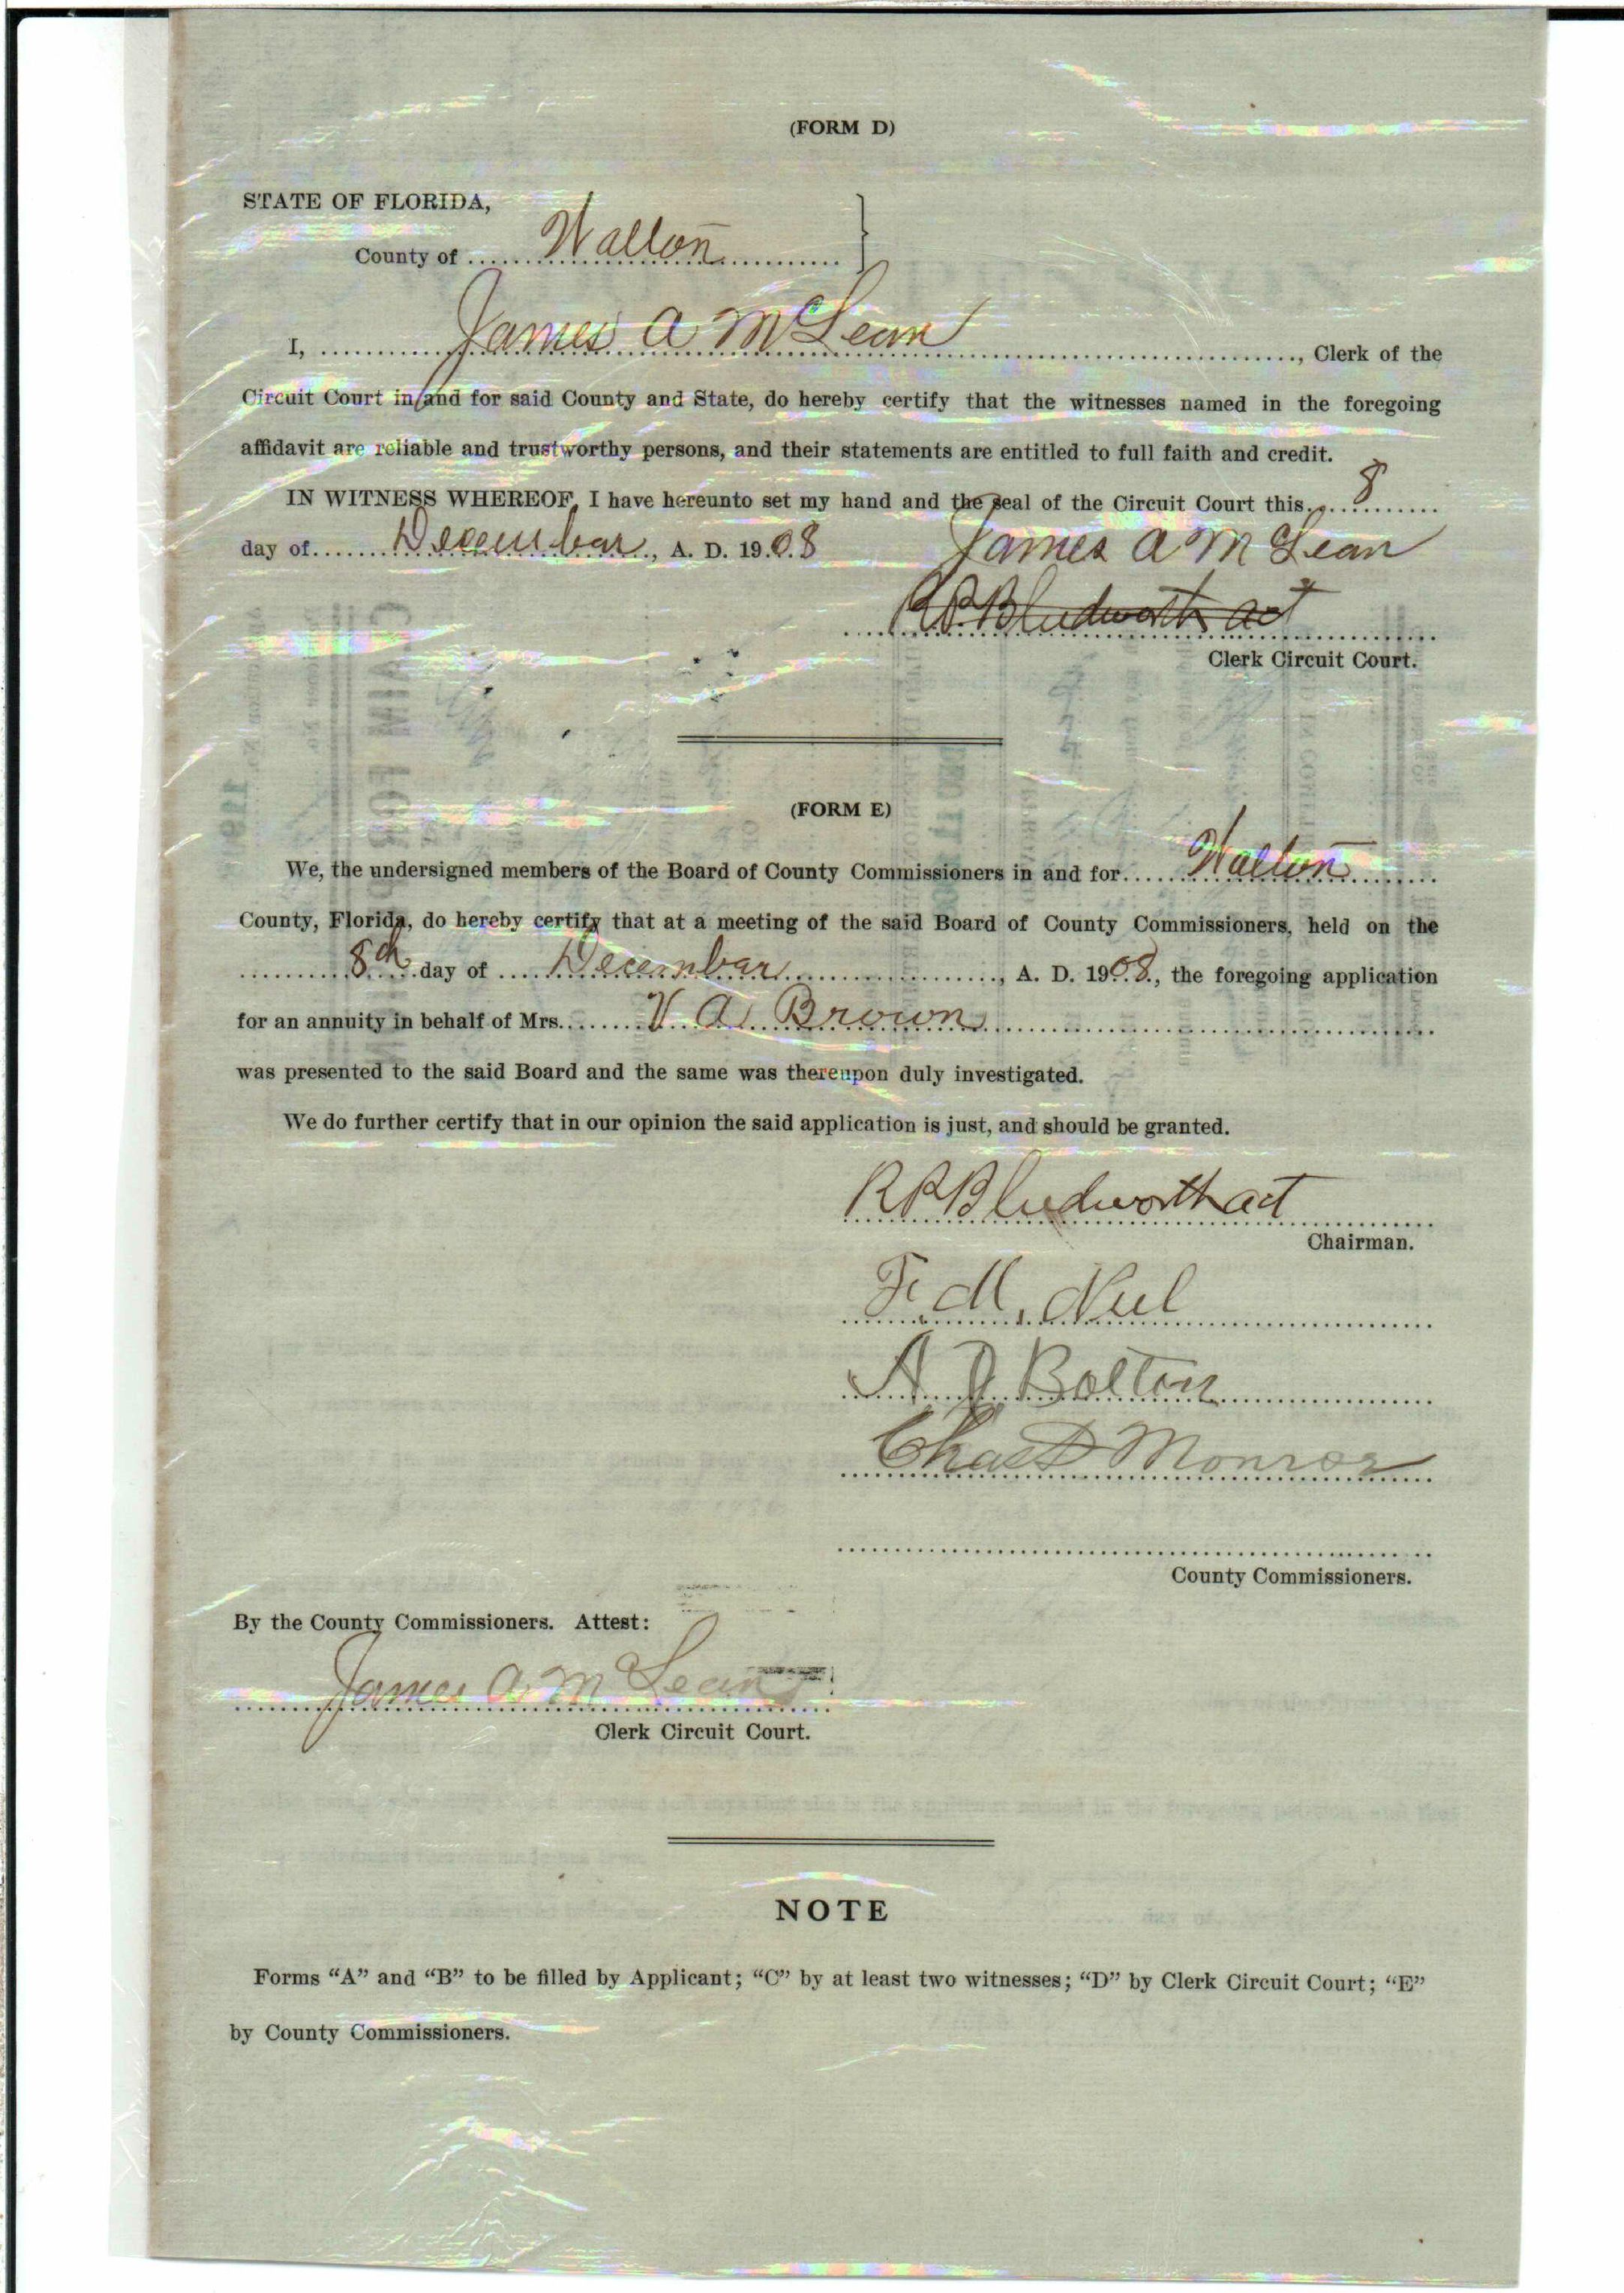 (FORM D)
STATE OF FLORIDA,
County of Walton
I, James A McLean, Clerk of the
Circuit Court in and for said County and State, do hereby certify that the witnesses named in the foregoing
affidavit are reliable and trustworthy persons, and their statements are entitled to full faith and credit.
IN WITNESS WHEREOF, I have hereunto set my hand and the seal of the Circuit Court this 8
day of December, A. D. 1908 James A McLean
R P Bludworth act
Clerk Circuit Court.
(FORM E)
We, the undersigned members of the Board of County Commissioners in and for Walton
County, Florida, do hereby certify that at a meeting of the said Board of County Commissioners, held on the
8th day of December, A. D. 1908., the foregoing application
for an annuity in behalf of Mrs. V A Brown
was presented to the said Board and the same was thereupon duly investigated.
We do further certify that in our opinion the said application is just, and should be granted.
R P Bludworth act
Chairman.
F. M. Neel
A J Bolton
Chas D Monroe
County Commissioners.
By the County Commissioners. Attest:
James A McLean
Clerk Circuit Court.
NOTE
Forms “A” and “B” to be filled by Applicant; “C” by at least two witnesses; “D” by Clerk Circuit Court; “E”
by County Commissioners.